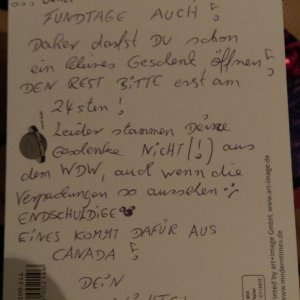 ... und
FUNDTAGE AUCH!
Daher darfst DU schon
ein kleines Geschenk öffnen!
DEN REST BITTE erst am
24sten!
Leider stammen Deine
Geschenke NICHT(!) aus
dem WDW, auch wenn die
Verpackungen so aussehen
ENDSCHULDIGE
EINES KOMMT DAFÜR AUS
CANADA!
DEIN
WICHTEL
printed by art+image GmbH, www.art-image.de
www.moderntimes